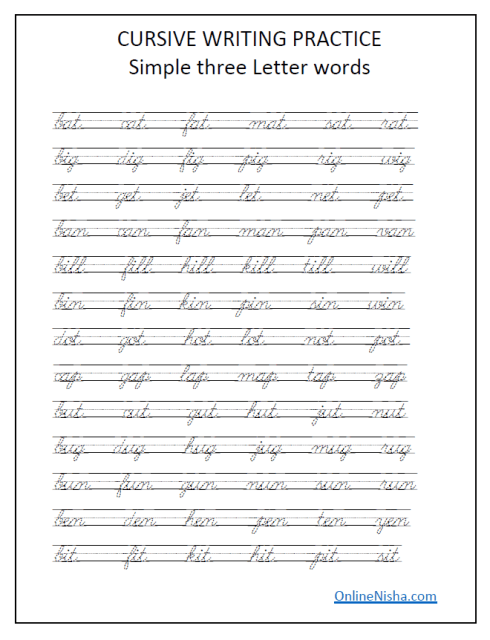 CURSIVE WRITING PRACTICE
Simple three Letter words
bat cat fat mat sat rat
big dig fig pig rig wig
bet get jet let net pet
ban can fan man pan van
bill fill hill kill till will
bin fin kin pin sin win
dot got hot lot not pot
cap gap lap map tap zap
but cut gut hut jut nut
bug dug hug jug mug rug
bun fun gun nun sun run
ben den hen pen ten yen
bit fit kit hit pit sit
OnlineNisha.com